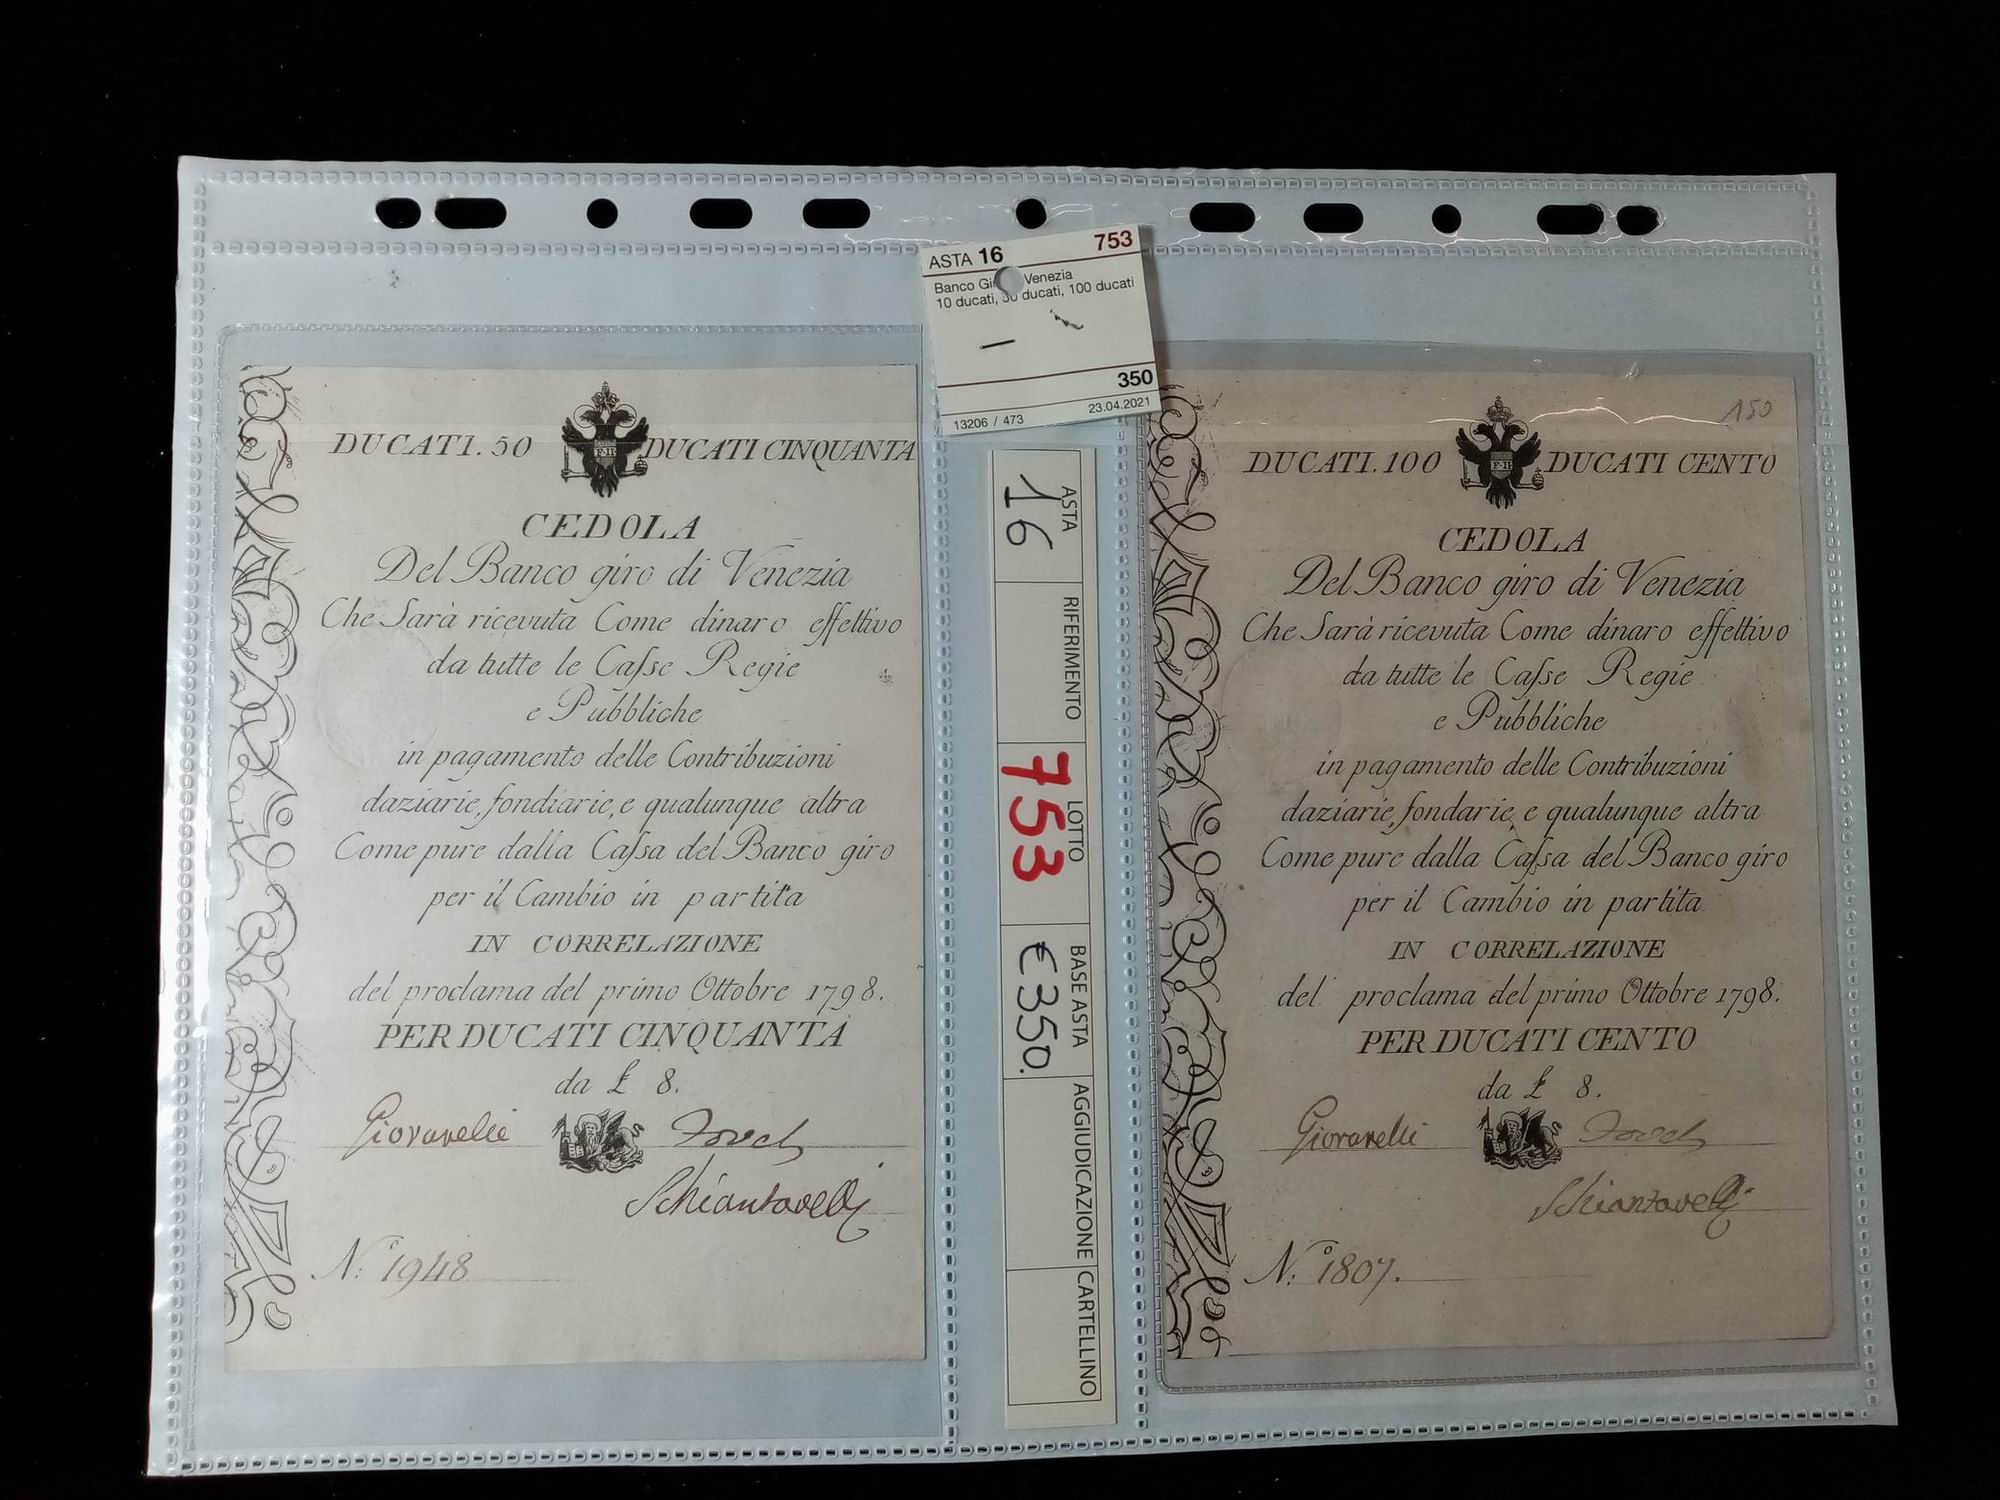 ASTA 16 753
Banco Gi Venezia
10 ducati, 50 ducati, 100 ducati
350
13206 / 473 23.04.2021
DUCATI. 50 DUCATI CINQUANTA
CEDOLA
Del Banco giro di Venezia
Che Sarà ricevuta Come dinaro effettivo
da tutte le Caſse Regie
e Pubbliche
in pagamento delle Contribuzioni
daziarie, fondiarie, e qualunque altra
Come pure dalla Caſsa del Banco giro
per il Cambio in partita
IN CORRELAZIONE
del proclama del primo Ottobre 1798.
PER DUCATI CINQUANTA
da £ 8.
Giovanelli
Schiantarelli
N:° 1948
ASTA 16
RIFERIMENTO
LOTTO 753
BASE ASTA €350.
AGGIUDICAZIONE
CARTELLINO
150
DUCATI. 100 F·II DUCATI CENTO
CEDOLA
Del Banco giro di Venezia
Che Sarà ricevuta Come dinaro effettivo
da tutte le Caſse Regie
e Pubbliche
in pagamento delle Contribuzioni
daziarie, fondarie, e qualunque altra
Come pure dalla Caſsa del Banco giro
per il Cambio in partita
IN CORRELAZIONE
del proclama del primo Ottobre 1798.
PER DUCATI CENTO
da £ 8.
Giovanelli
Schiantarelli
N:° 1807.